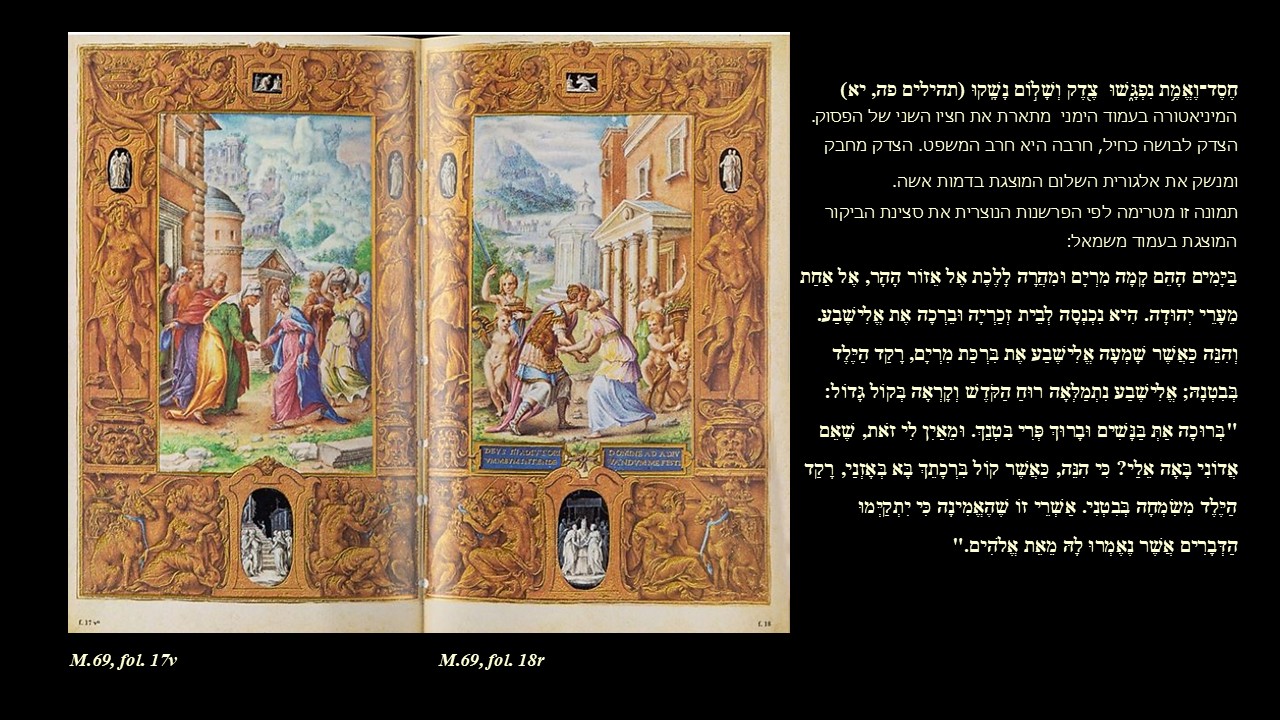 חֶסֶד־וֶאֱמֶ֥ת נִפְגָּ֑שׁוּ צֶ֖דֶק וְשָׁל֣וֹם נָשָֽׁקוּ (תהילים פה, יא)
המיניאטורה בעמוד הימני מתארת את חציו השני של הפסוק.
הצדק לבושה כחיל, חרבה היא חרב המשפט. הצדק מחבק
ומנשק את אלגורית השלום המוצגת בדמות אשה.
תמונה זו מטרימה לפי הפרשנות הנוצרית את סצינת הביקור
המוצגת בעמוד משמאל:
בַּיָּמִים הָהֵם קָמָה מִרְיָם וּמִהֲרָה לָלֶכֶת אֶל אֵזוֹר הָהָר, אֶל אַחַת
מֵעָרֵי יְהוּדָה. הִיא נִכְנְסָה לְבֵית זְכַרְיָה וּבֵרְכָה אֶת אֱלִישֶׁבַע.
וְהִנֵּה כַּאֲשֶׁר שָׁמְעָה אֱלִישֶׁבַע אֶת בִּרְכַּת מִרְיָם, רָקַד הַיֶּלֶד
בְּבִטְנָהּ; אֱלִישֶׁבַע נִתְמַלְּאָה רוּחַ הַקֹּדֶשׁ וְקָרְאָה בְּקוֹל גָּדוֹל:
"בְּרוּכָה אַתְּ בַּנָּשִׁים וּבָרוּךְ פְּרִי בִּטְנֵךְ. וּמֵאַיִן לִי זֹאת, שֶׁאֵם
אֲדוֹנִי בָּאָה אֵלַי? כִּי הִנֵּה, כַּאֲשֶׁר קוֹל בִּרְכָתֵךְ בָּא בְּאָזְנַי, רָקַד
הַיֶּלֶד מִשִּׂמְחָה בְּבִטְנִי. אַשְׁרֵי זוֹ שֶׁהֶאֱמִינָה כִּי יִתְקַיְּמוּ
הַדְּבָרִים אֲשֶׁר נֶאֶמְרוּ לָהּ מֵאֵת אֱלֹהִים."
DEVS IN ADIVTORI
VM MEVM INTENDE
DOMINE AD ADIV
VANDVM ME FESTI
f. 17 vº
f. 18
M.69, fol. 17v
M.69, fol. 18r